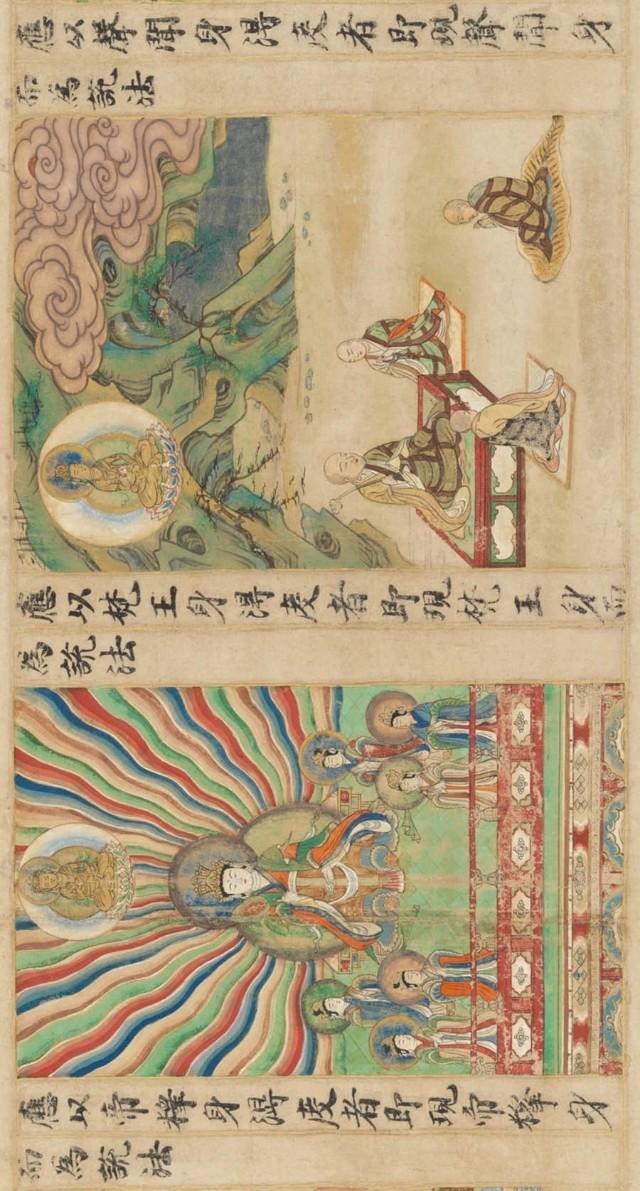 應以聲聞身得度者即現聲聞身
而為說法
應以梵王身得度者即現梵王身而
為說法
應以帝釋身得度者即現帝釋身
而為說法